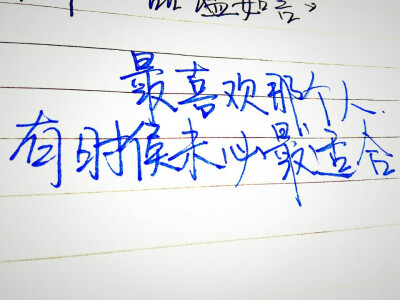 如言、
最喜欢那个人.
有时侯未必最适合